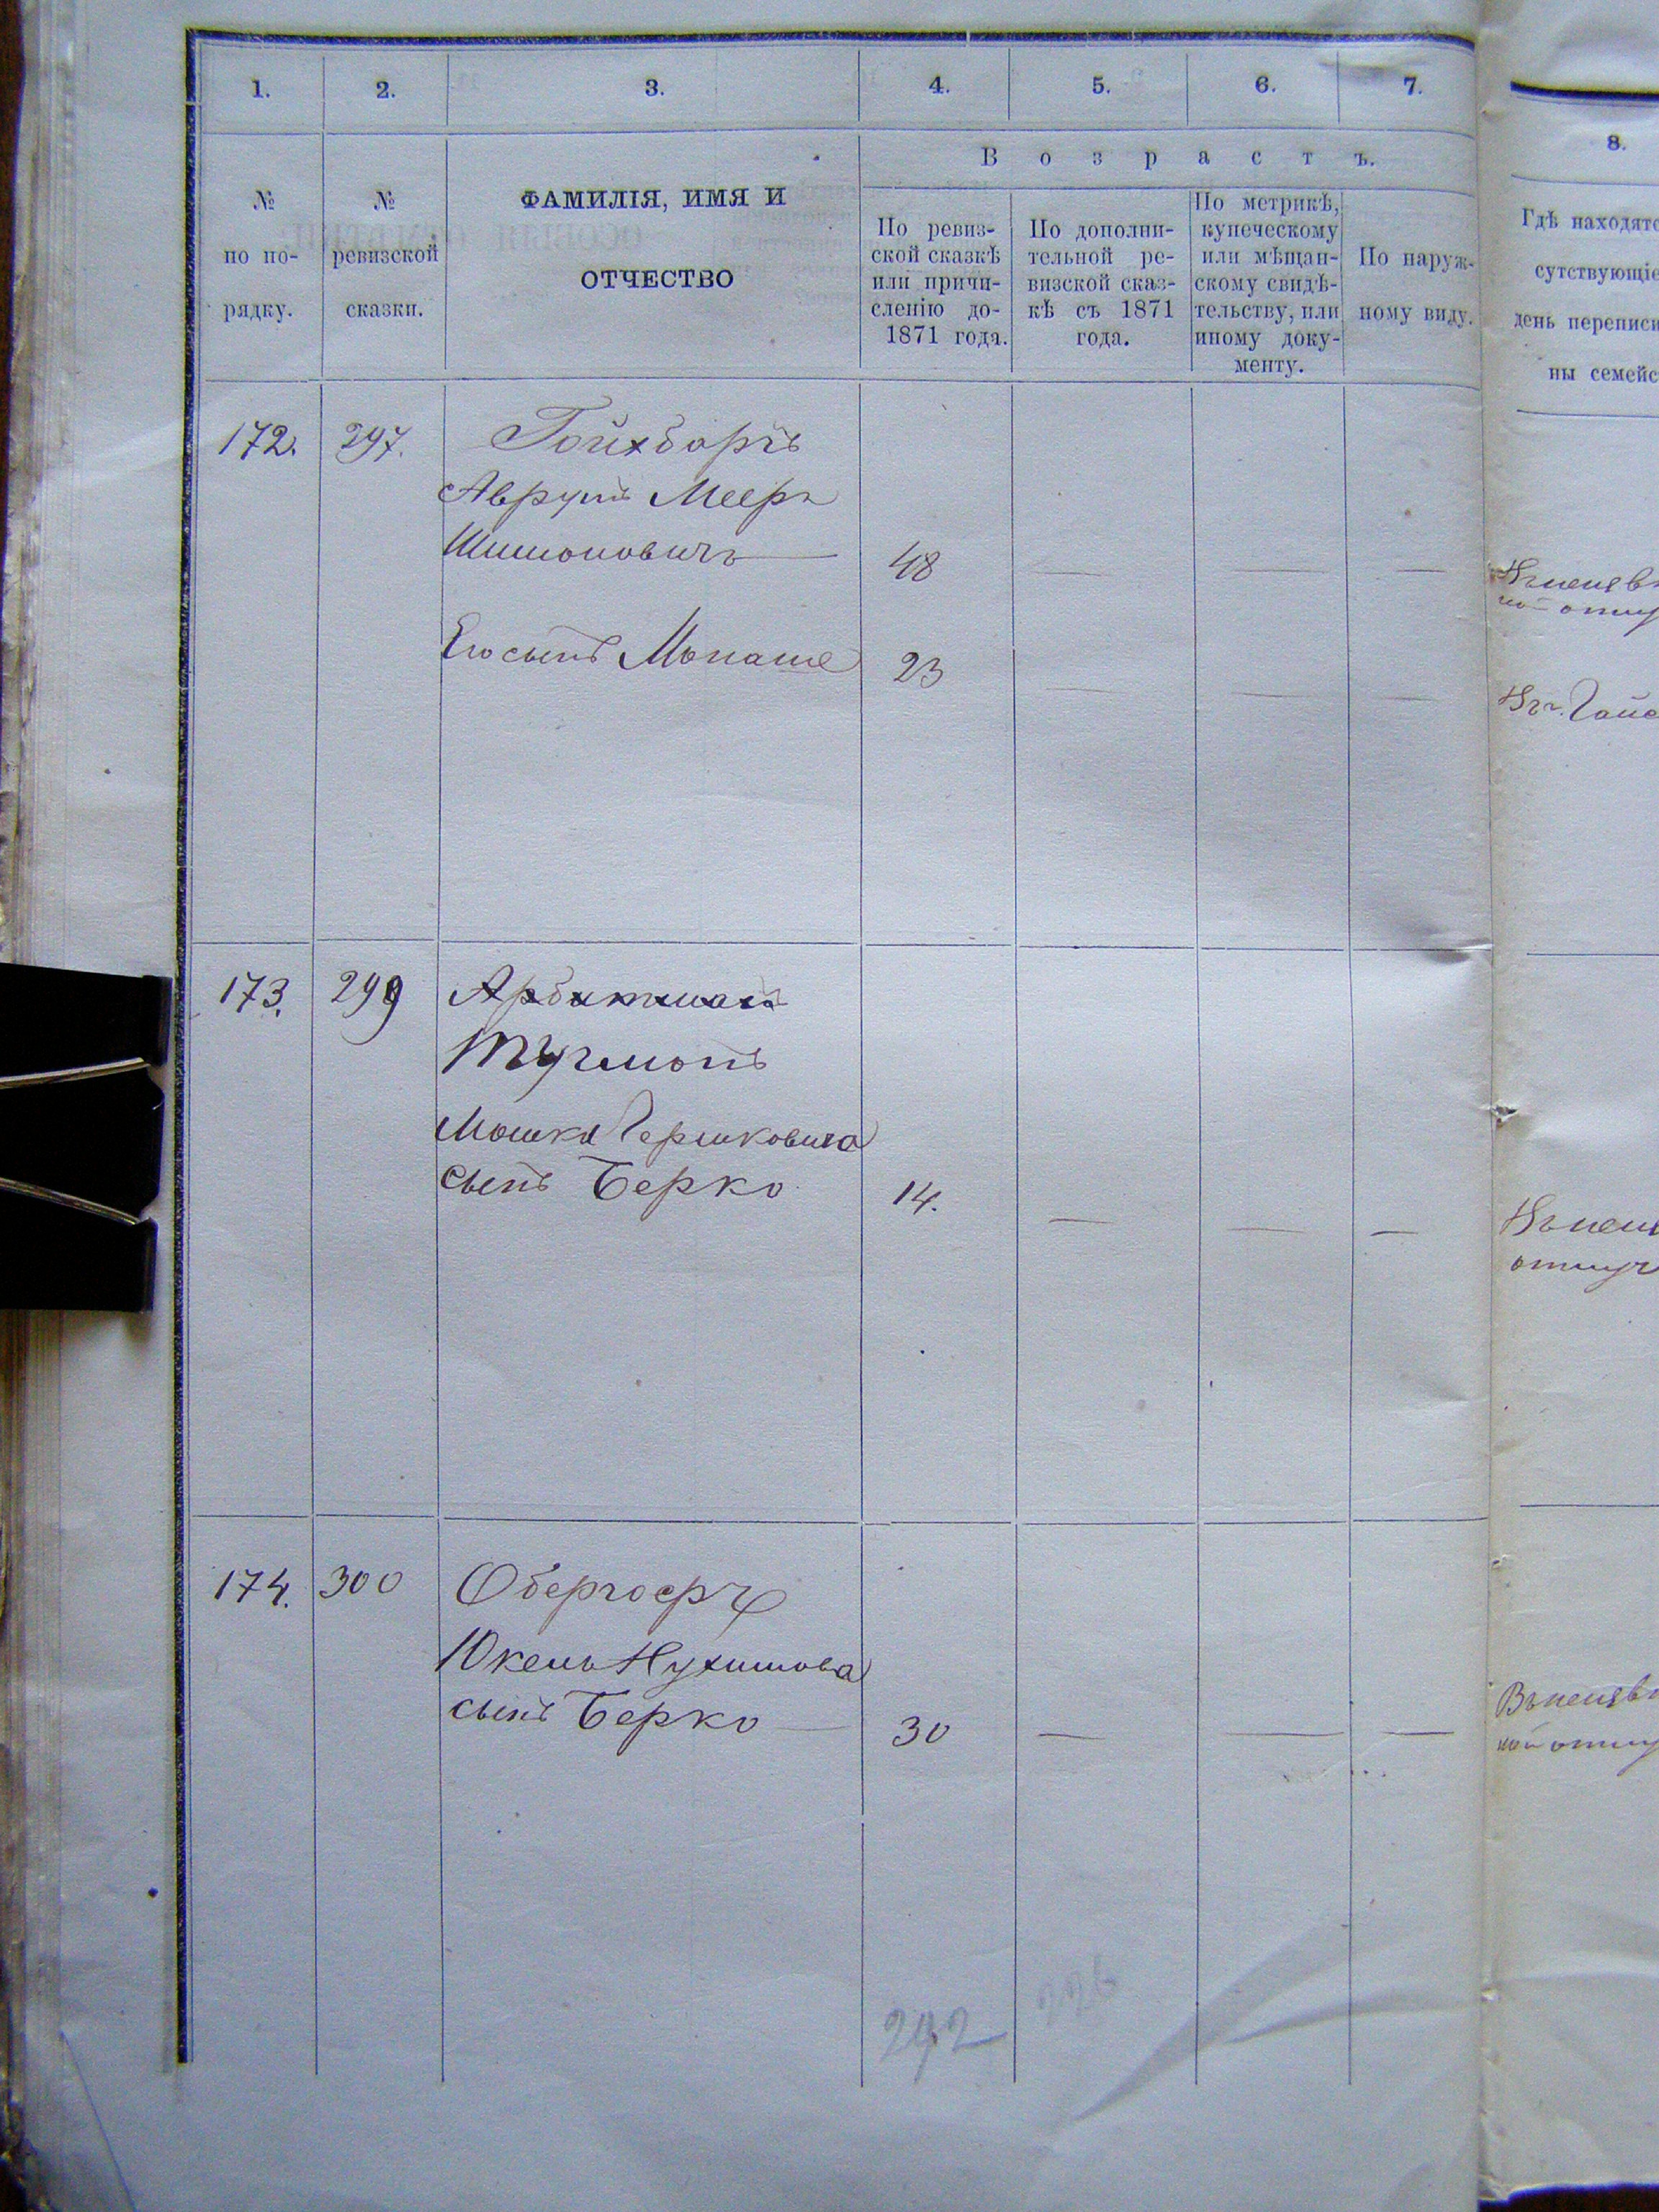 1. 2. 3. 4. 5. 6. 7.
8.
№ по по- рядку.
№ ревизской сказки.
ФАМИЛІЯ, ИМЯ И
ОТЧЕСТВО
Возрастъ.
По ревиз-
ской сказкѣ
или причи-
сленію до-
1871 года.
По дополни-
тельной ре-
визской сказ-
кѣ съ 1871
года.
По метрикѣ,
купеческому
или мѣщан-
скому свидѣ-
тельству, или
иному доку-
менту.
По наруж-
ному виду.
Гдѣ находятс
сутствующіе
день переписи
ны семейс
172. 297. Гойхбаргъ
Аврумъ Мееръ
Шимоновичъ 48 — — —
Его сынъ Монаше 23 — — —
173. 299 Арбитманъ
Тучманъ
Мошка Гершковича
сынъ Берко 14. — — —
174. 300 Обергоерц
Юкель Нухимова
сынъ Берко 30 — — —
242
226